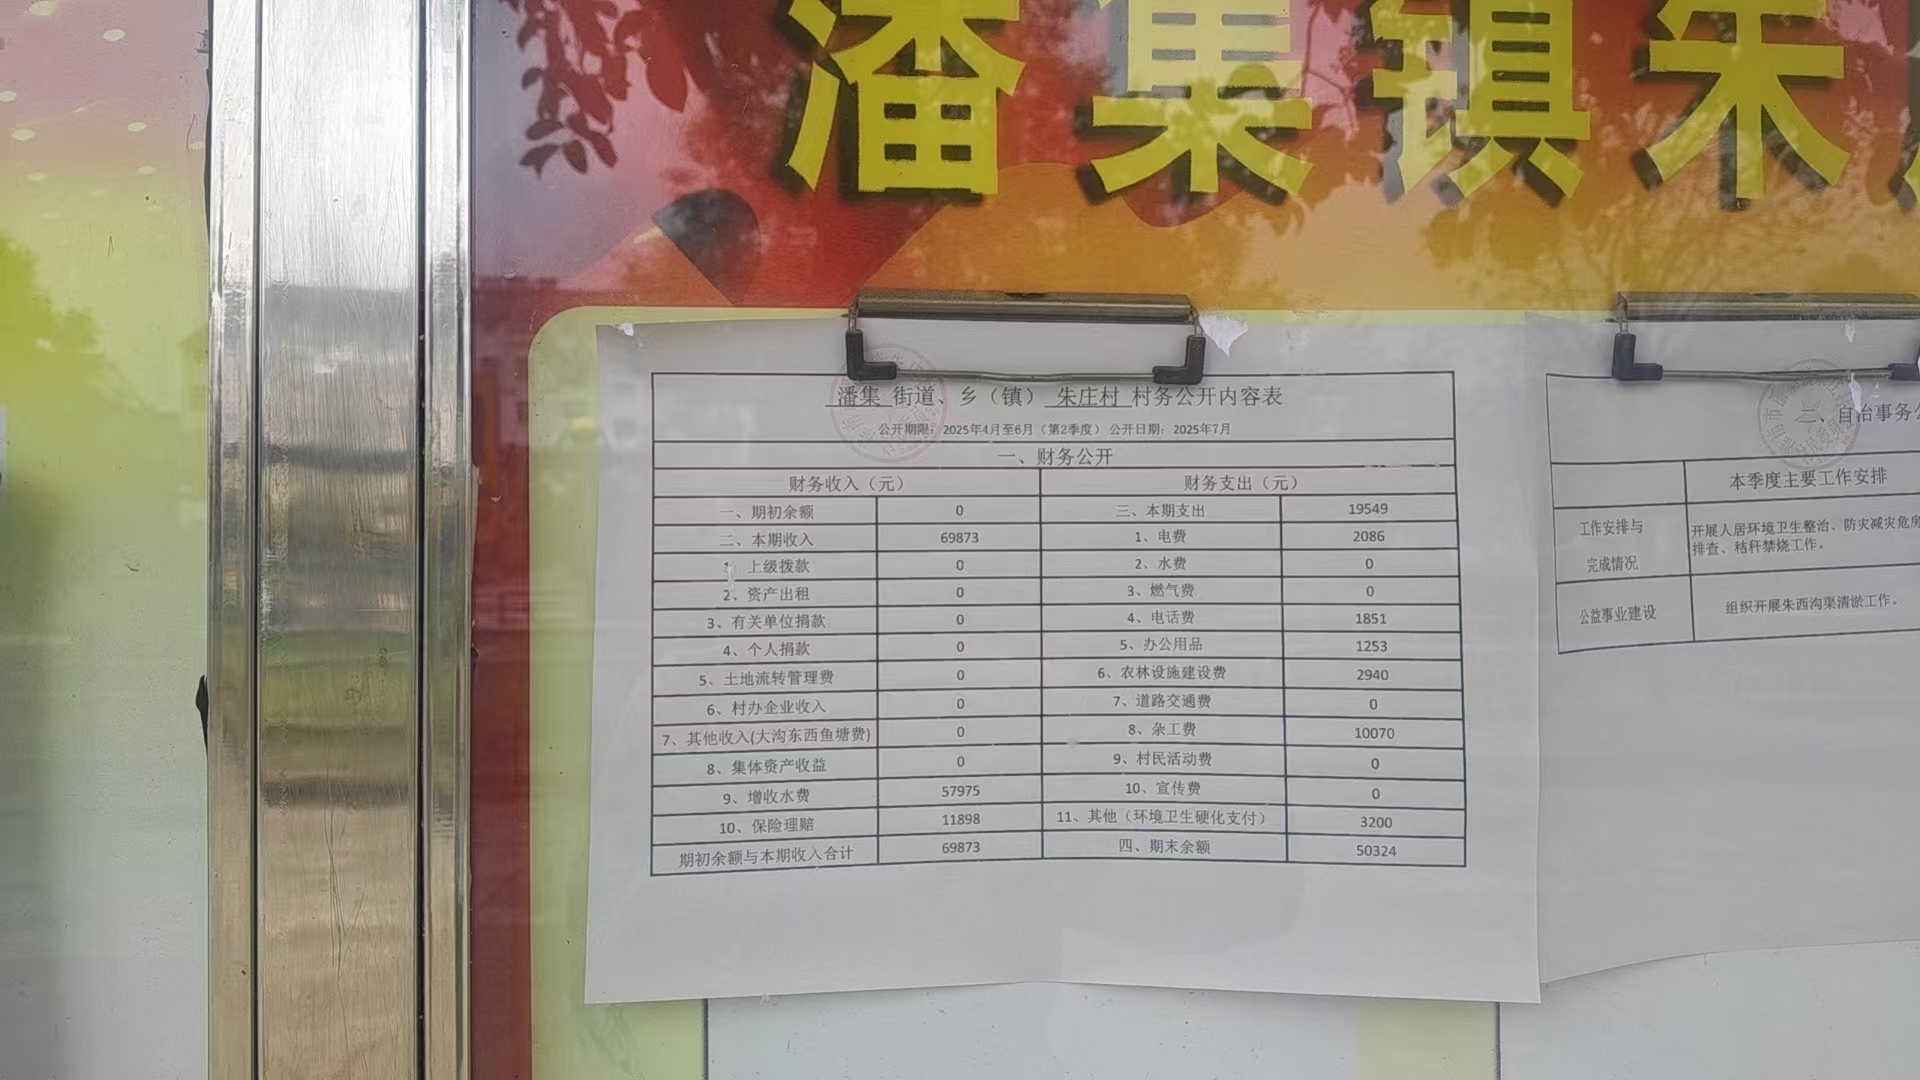 潘集镇朱
潘集 街道、乡（镇） 朱庄村 村务公开内容表
公开期限：2025年4月至6月（第2季度） 公开日期：2025年7月
一、财务公开
财务收入（元） 财务支出（元）
一、期初余额 0 三、本期支出 19549
二、本期收入 69873 1、电费 2086
1、上级拨款 0 2、水费 0
2、资产出租 0 3、燃气费 0
3、有关单位捐款 0 4、电话费 1851
4、个人捐款 0 5、办公用品 1253
5、土地流转管理费 0 6、农林设施建设费 2940
6、村办企业收入 0 7、道路交通费 0
7、其他收入(大沟东西鱼塘费) 0 8、杂工费 10070
8、集体资产收益 0 9、村民活动费 0
9、增收水费 57975 10、宣传费 0
10、保险理赔 11898 11、其他（环境卫生硬化支付） 3200
期初余额与本期收入合计 69873 四、期末余额 50324
二、自治事务公
本季度主要工作安排
工作安排与
完成情况
开展人居环境卫生整治、防灾减灾危房
排查、秸秆禁烧工作。
公益事业建设 组织开展朱西沟渠清淤工作。